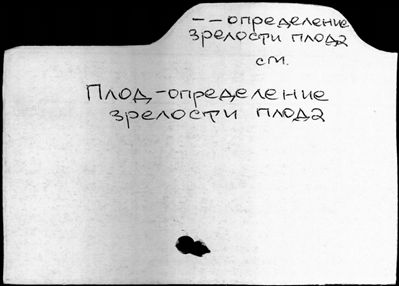 ——определение
зрелости плода
см.
Плод-определение
зрелости плода